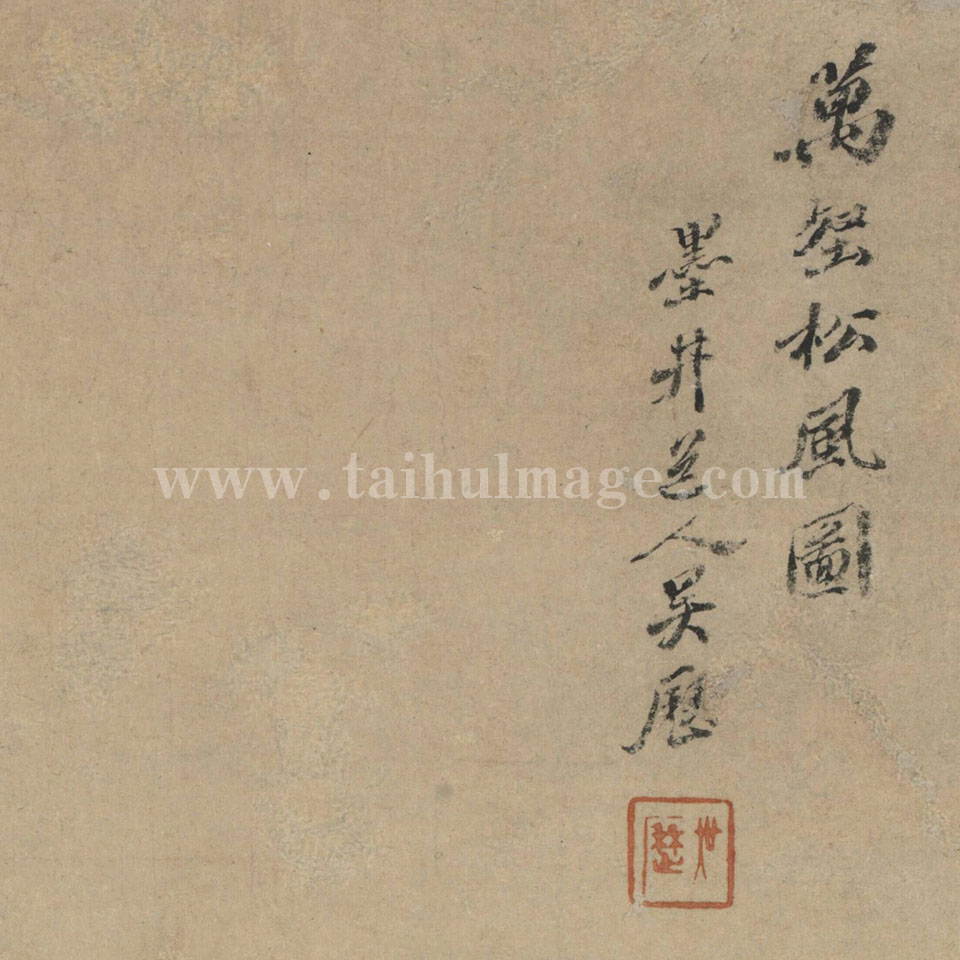 萬壑松風圖
墨井道人吳歷
www.taihuImage.com